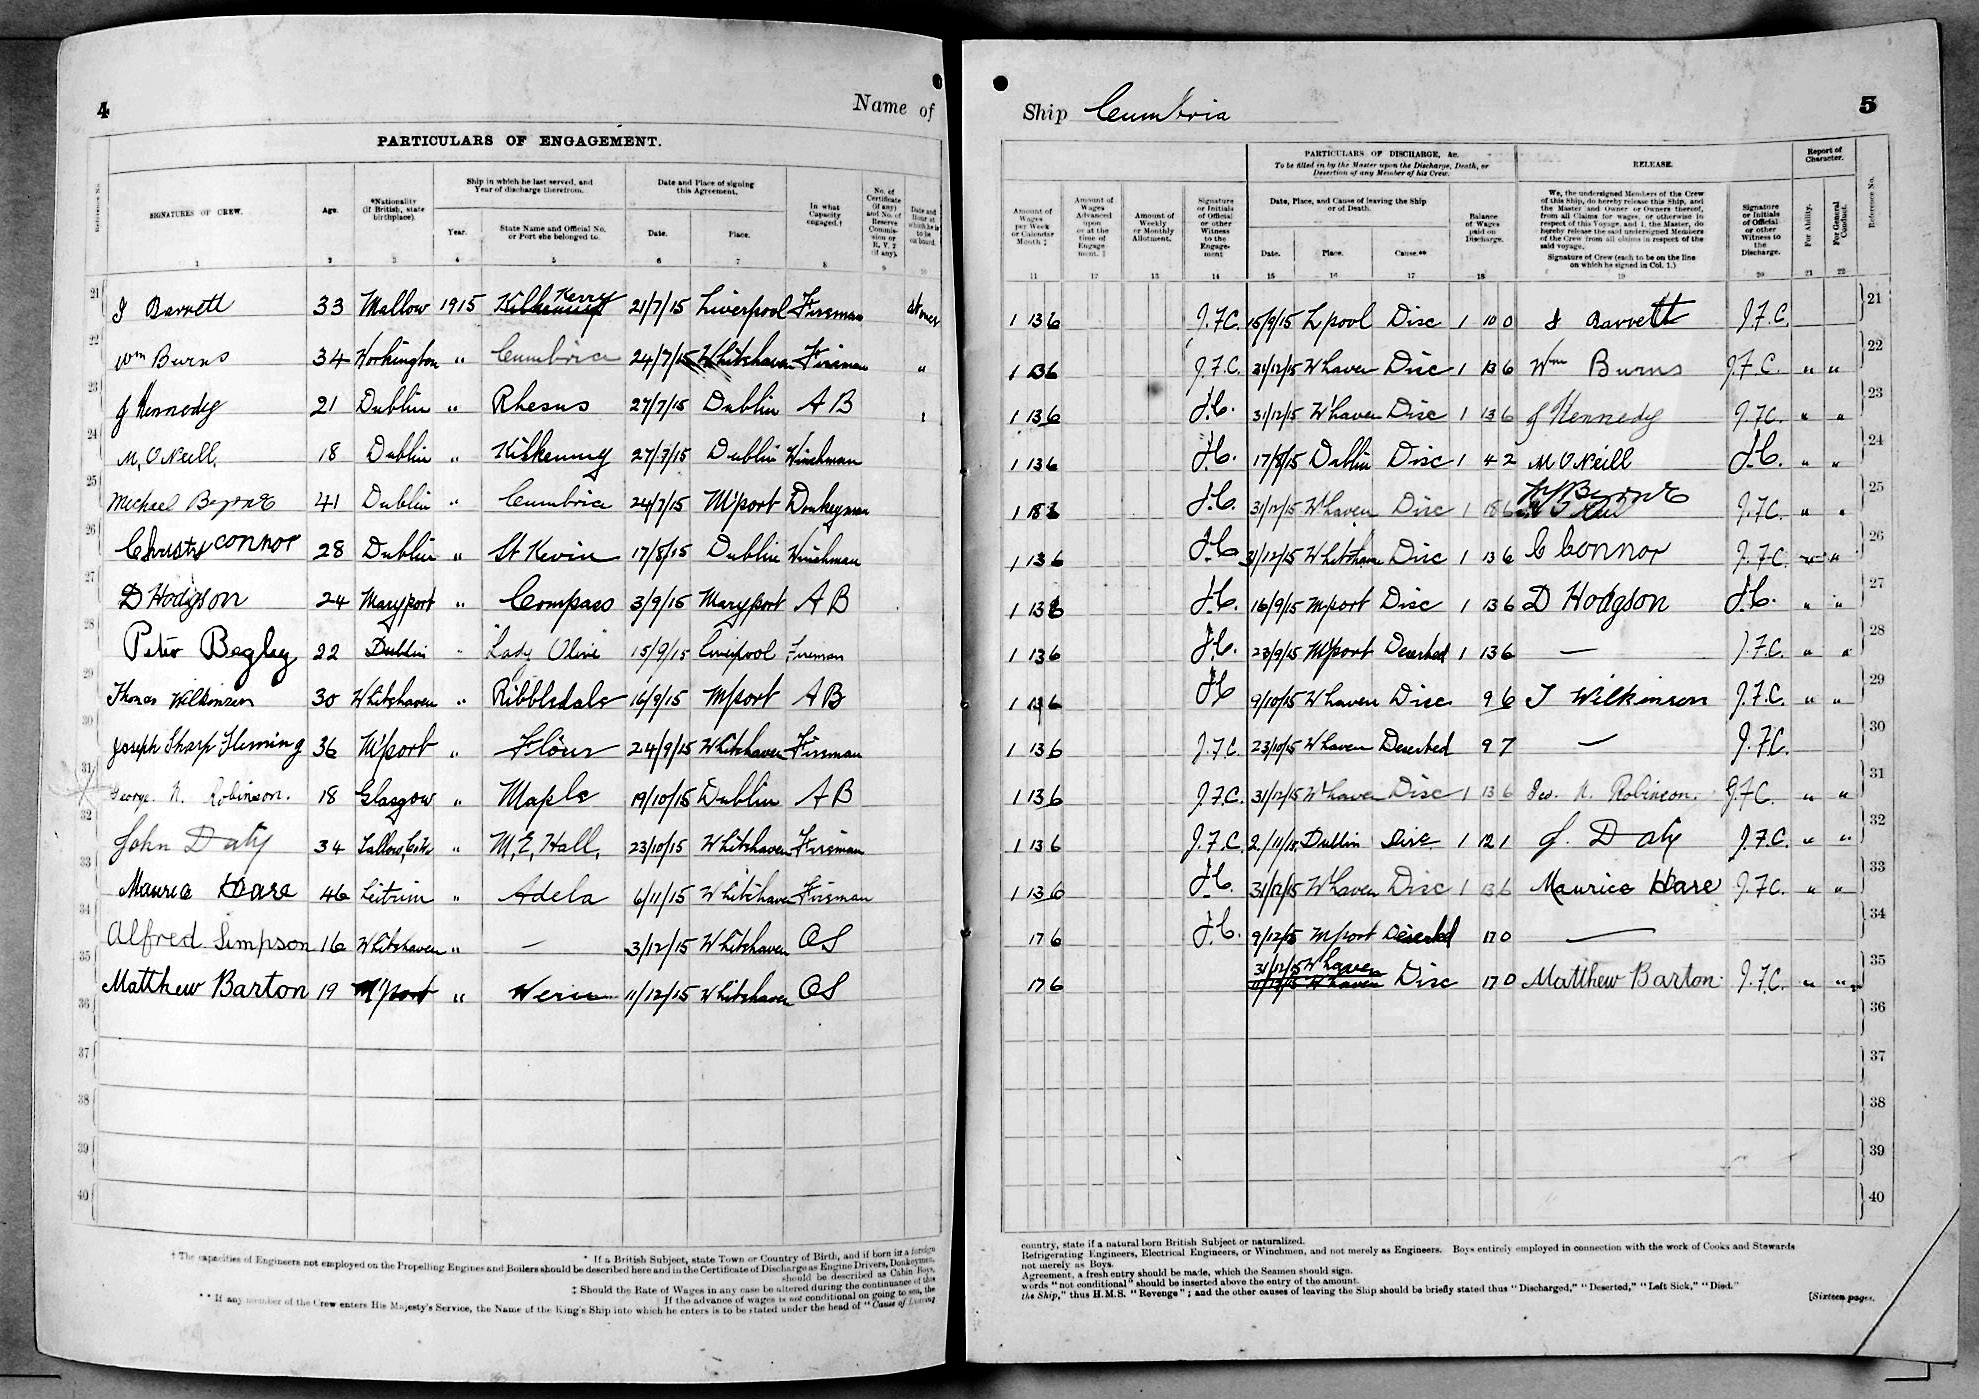 4
Name of
PARTICULARS OF ENGAGEMENT.
Reference No.
SIGNATURES OF CREW.
Age.
*Nationality (if British, state birthplace).
Ship in which he last served, and Year of discharge therefrom.
Year.
State Name and Official No. or Port she belonged to.
Date and Place of signing this Agreement.
Date.
Place.
In what Capacity engaged.†
No. of Certificate (if any) and No. of Reserve Commission or R.V.2 (if any).
Date and Hour at which he is to be on board.
1 2 3 4 5 6 7 8 9 10
21 J Barrett 33 Mallow 1915 Kerry 21/7/15 Liverpool Fireman At once
22 Wm Burns 34 Workington " Cumbria 24/7/15 Whitehaven Fireman "
23 J Kennedy 21 Dublin " Rhesus 27/7/15 Dublin A B
24 M, O'Neill. 18 Dublin " Kilkenny 27/7/15 Dublin Winchman
25 Michael Byrne 41 Dublin " Cumbria 24/7/15 M'port Donkeyman
26 Christy Connor 28 Dublin " St Kevin 17/8/15 Dublin Winchman
27 D Hodgson 24 Maryport " Compass 3/9/15 Maryport A B
28 Peter Begley 22 Dublin " Lady Olive 15/9/15 Liverpool Fireman
29 Thomas Wilkinson 30 Whitehaven " Ribblesdale 16/9/15 M'port A B
30 Joseph Sharp Fleming 36 M'port " 24/9/15 Whitehaven Fireman
31 George. N. Robinson. 18 Glasgow " Maple 19/10/15 Dublin A B
32 John Daly 34 " M, E, Hall, 23/10/15 Whitehaven Fireman
33 Maurice Hare 46 Leitrim " Adela 6/11/15 Whitehaven Fireman
34 Alfred Simpson 16 Whitehaven " — 3/12/15 Whitehaven OS
35 Matthew Barton 19 M'port " 11/12/15 Whitehaven OS
36
37
38
39
40
* If a British Subject, state Town or Country of Birth, and if born in a foreign
† The capacities of Engineers not employed on the Propelling Engines and Boilers should be described here and in the Certificate of Discharge as Engine Drivers, Donkeymen,
should be described as Cabin Boys,
‡ Should the Rate of Wages in any case be altered during the continuance of this
If the advance of wages is not conditional on going to sea, the
** If any member of the Crew enters His Majesty's Service, the Name of the King's Ship into which he enters is to be stated under the head of "Cause of Leaving
Ship Cumbria
5
Amount of Wages per Week or Calendar Month ‡
Amount of Wages Advanced upon or at the time of Engagement. ‡
Amount of Weekly or Monthly Allotment.
Signature or Initials of Official or other Witness to the Engagement
PARTICULARS OF DISCHARGE, &c.
To be filled in by the Master upon the Discharge, Death, or Desertion of any Member of his Crew.
Date, Place, and Cause of leaving the Ship or of Death.
Date.
Place.
Cause.**
Balance of Wages paid on Discharge.
RELEASE.
We, the undersigned Members of the Crew of this Ship, do hereby release this Ship, and the Master and Owner or Owners thereof, from all Claims for wages, or otherwise in respect of this Voyage, and I, the Master, do hereby release the said undersigned Members of the Crew from all claims in respect of the said voyage.
Signature of Crew (each to be on the line on which he signed in Col. 1.)
Signature or Initials of Official or other Witness to the Discharge.
Report of Character.
For Ability.
For General Conduct.
Reference No.
11 12 13 14 15 16 17 18 19 20 21 22
1 13 6 J.F.C. 15/9/15 L'pool Disc 1 10 0 J Barrett J.F.C. 21
1 13 6 J.F.C. 31/12/15 W'haven Disc 1 13 6 Wm Burns J.F.C. " " 22
1 13 6 J.C. 31/12/15 W'haven Disc 1 13 6 J Kennedy J.F.C. " " 23
1 13 6 J.C. 17/8/15 Dublin Disc 1 4 2 M O'Neill J.C. " " 24
1 18 6 J.C. 31/12/15 W'haven Disc 1 18 6 M Byrne J.F.C. " " 25
1 13 6 J.C. 31/12/15 Whitehaven Disc 1 13 6 C Connor J.F.C. " " 26
1 13 6 J.C. 16/9/15 M'port Disc 1 13 6 D Hodgson J.C. " " 27
1 13 6 J.C. 23/9/15 M'port Deserted 1 13 6 — J.F.C. " " 28
1 13 6 J.C 9/10/15 W'haven Disc 9 6 T Wilkinson J.F.C. " " 29
1 13 6 J.F.C. 23/10/15 W'haven Deserted 9 7 — J.F.C. 30
1 13 6 J.F.C. 31/12/15 W'haven Disc 1 13 6 Geo. N. Robinson. J.F.C. " " 31
1 13 6 J.F.C. 2/11/15 Dublin Disc. 1 12 1 J. Daly J.F.C. " " 32
1 13 6 J.C. 31/12/15 W'haven Disc 1 13 6 Maurice Hare J.F.C. " " 33
17 6 J.C. 9/12/15 M'port Deserted 17 0 — 34
17 6 31/12/15 W'haven Disc 17 0 Matthew Barton J.F.C. " " 35
36
37
38
39
40
country, state if a natural born British Subject or naturalized.
Refrigerating Engineers, Electrical Engineers, or Winchmen, and not merely as Engineers. Boys entirely employed in connection with the work of Cooks and Stewards
not merely as Boys.
Agreement, a fresh entry should be made, which the Seamen should sign.
words "not conditional" should be inserted above the entry of the amount.
the Ship," thus H.M.S. "Revenge"; and the other causes of leaving the Ship should be briefly stated thus "Discharged," "Deserted," "Left Sick," "Died."
[Sixteen pages.